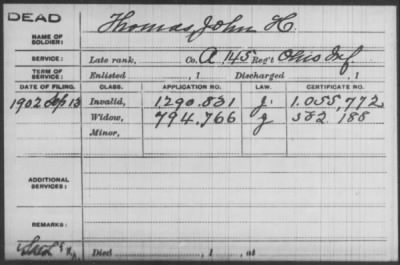 DEAD
NAME OF SOLDIER: Thomas, John H.
SERVICE: Late rank, Co. A 145 Reg't Ohio Inf.
TERM OF SERVICE: Enlisted , 1 Discharged , 1
DATE OF FILING. CLASS. APPLICATION NO. LAW. CERTIFICATE NO.
1902 Sep 13 Invalid, 1290.831 j. 1.055,772
Widow, 794.766 J 582.188
Minor,
ADDITIONAL SERVICES:
REMARKS:
Died , 1 , at